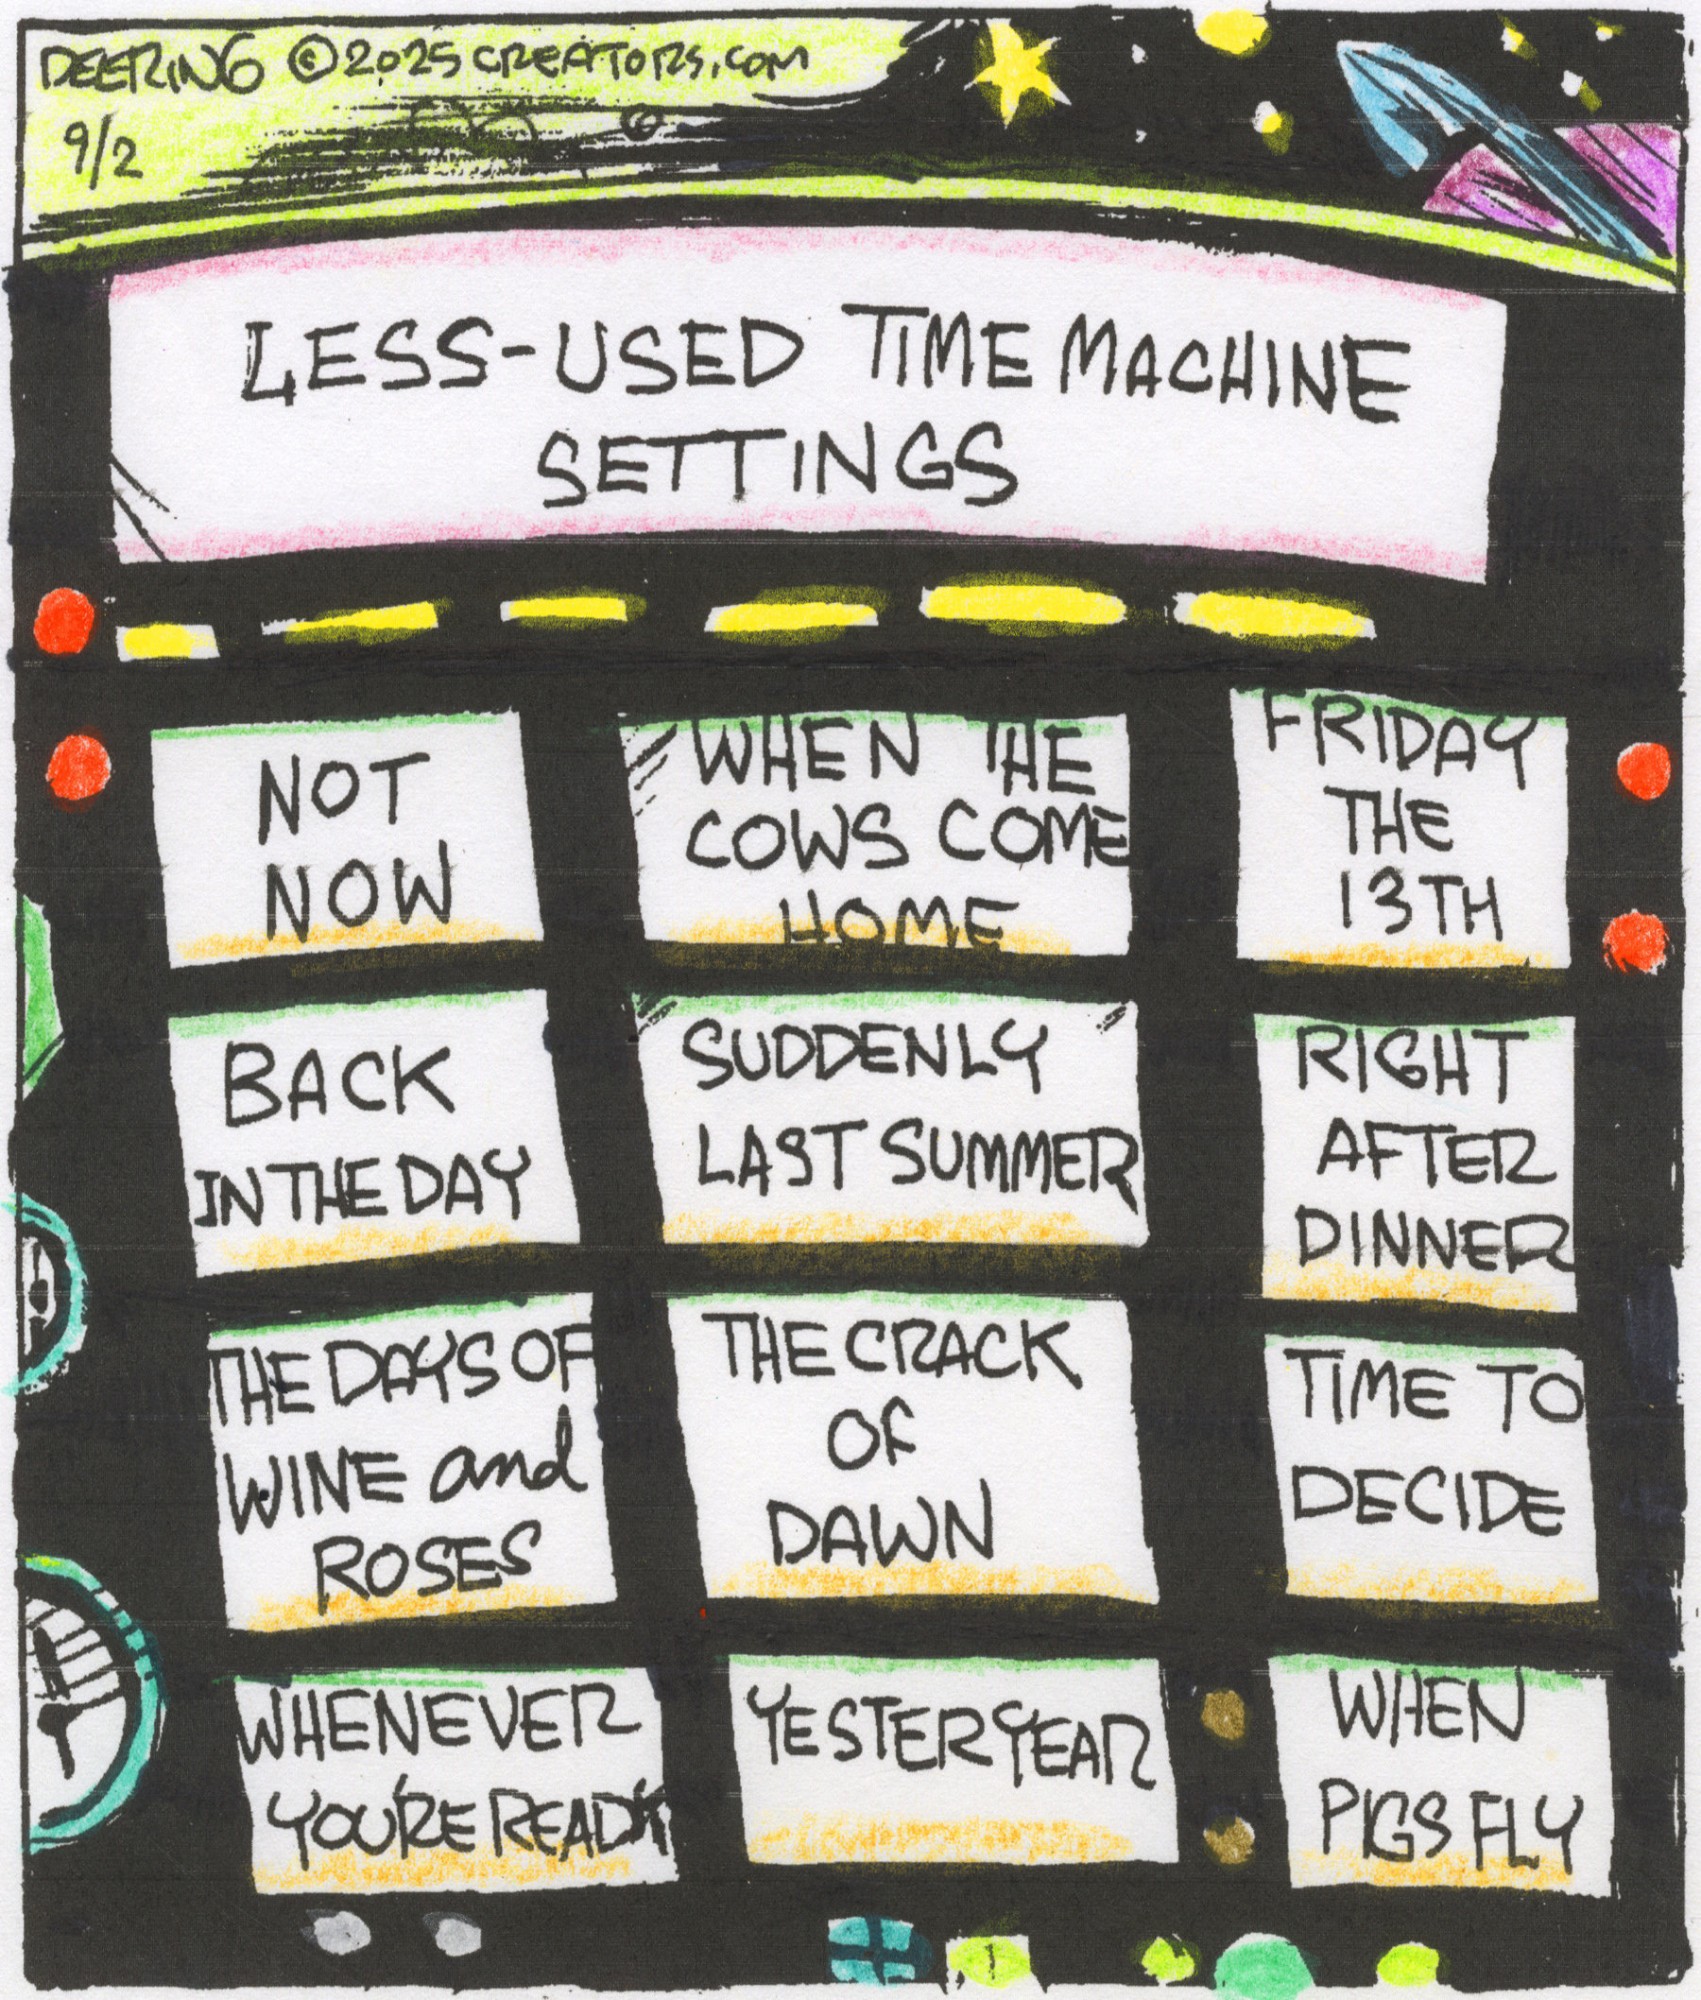 DEERING ©2025 CREATORS.COM
9/2
LESS-USED TIME MACHINE
SETTINGS
NOT
NOW
WHEN THE
COWS COME
HOME
FRIDAY
THE
13TH
BACK
IN THE DAY
SUDDENLY
LAST SUMMER
RIGHT
AFTER
DINNER
THE DAYS OF
WINE and
ROSES
THE CRACK
OF
DAWN
TIME TO
DECIDE
WHENEVER
YOU'RE READY
YESTERYEAR
WHEN
PIGS FLY